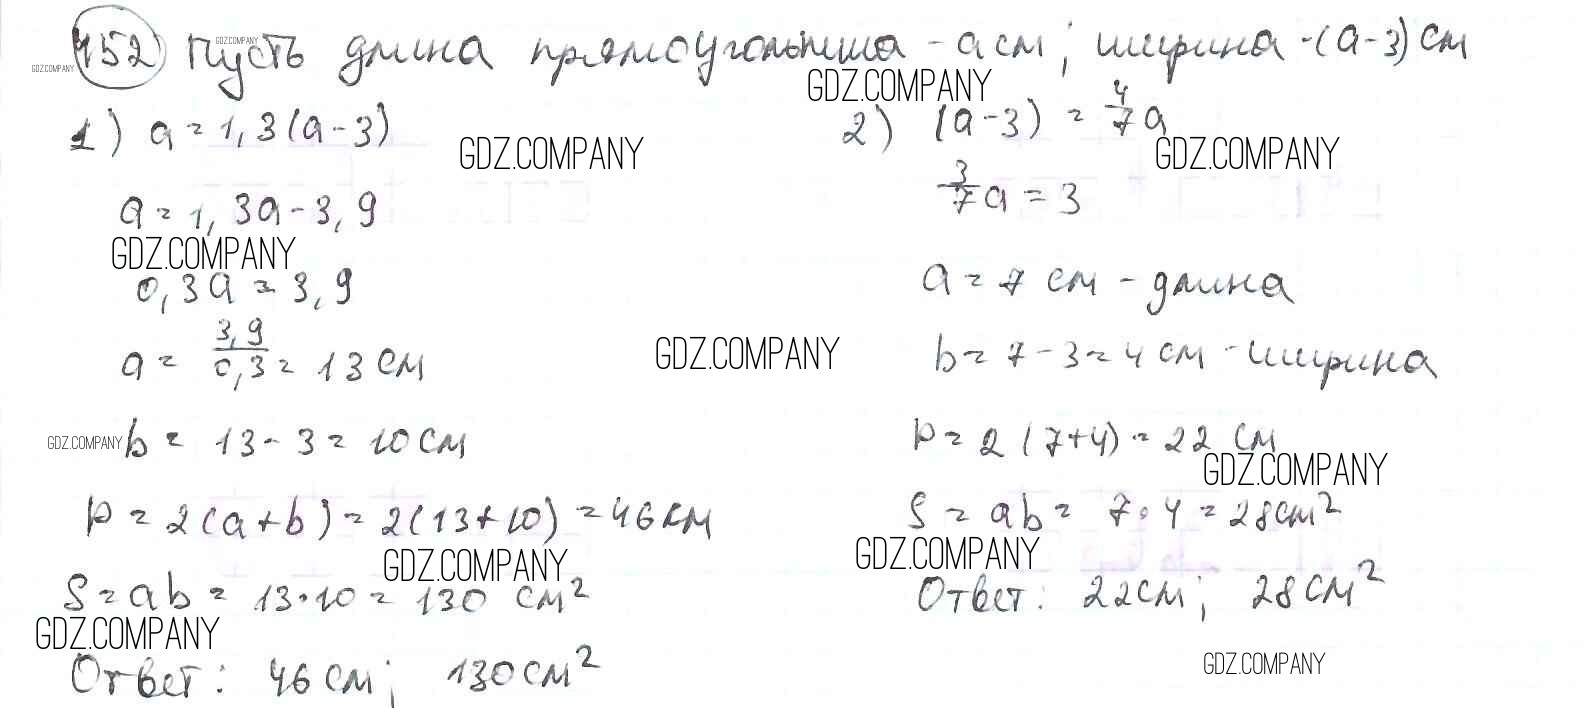 452 Пусть длина прямоугольника - a см; ширина - (a-3) см
GDZ.COMPANY
GDZ.COMPANY
GDZ.COMPANY
1) a = 1,3(a-3)
GDZ.COMPANY
a = 1,3a - 3,9
GDZ.COMPANY
0,3a = 3,9
a = 3,9/0,3 = 13 см
GDZ.COMPANY
GDZ.COMPANY b = 13 - 3 = 10 см
p = 2(a+b) = 2(13+10) = 46 см
GDZ.COMPANY
S = ab = 13·10 = 130 см²
GDZ.COMPANY
Ответ: 46 см; 130 см²
2) (a-3) = 4/7 a
GDZ.COMPANY
3/7 a = 3
a = 7 см - длина
b = 7 - 3 = 4 см - ширина
p = 2(7+4) = 22 см
GDZ.COMPANY
S = ab = 7·4 = 28 см²
GDZ.COMPANY
Ответ: 22 см; 28 см²
GDZ.COMPANY